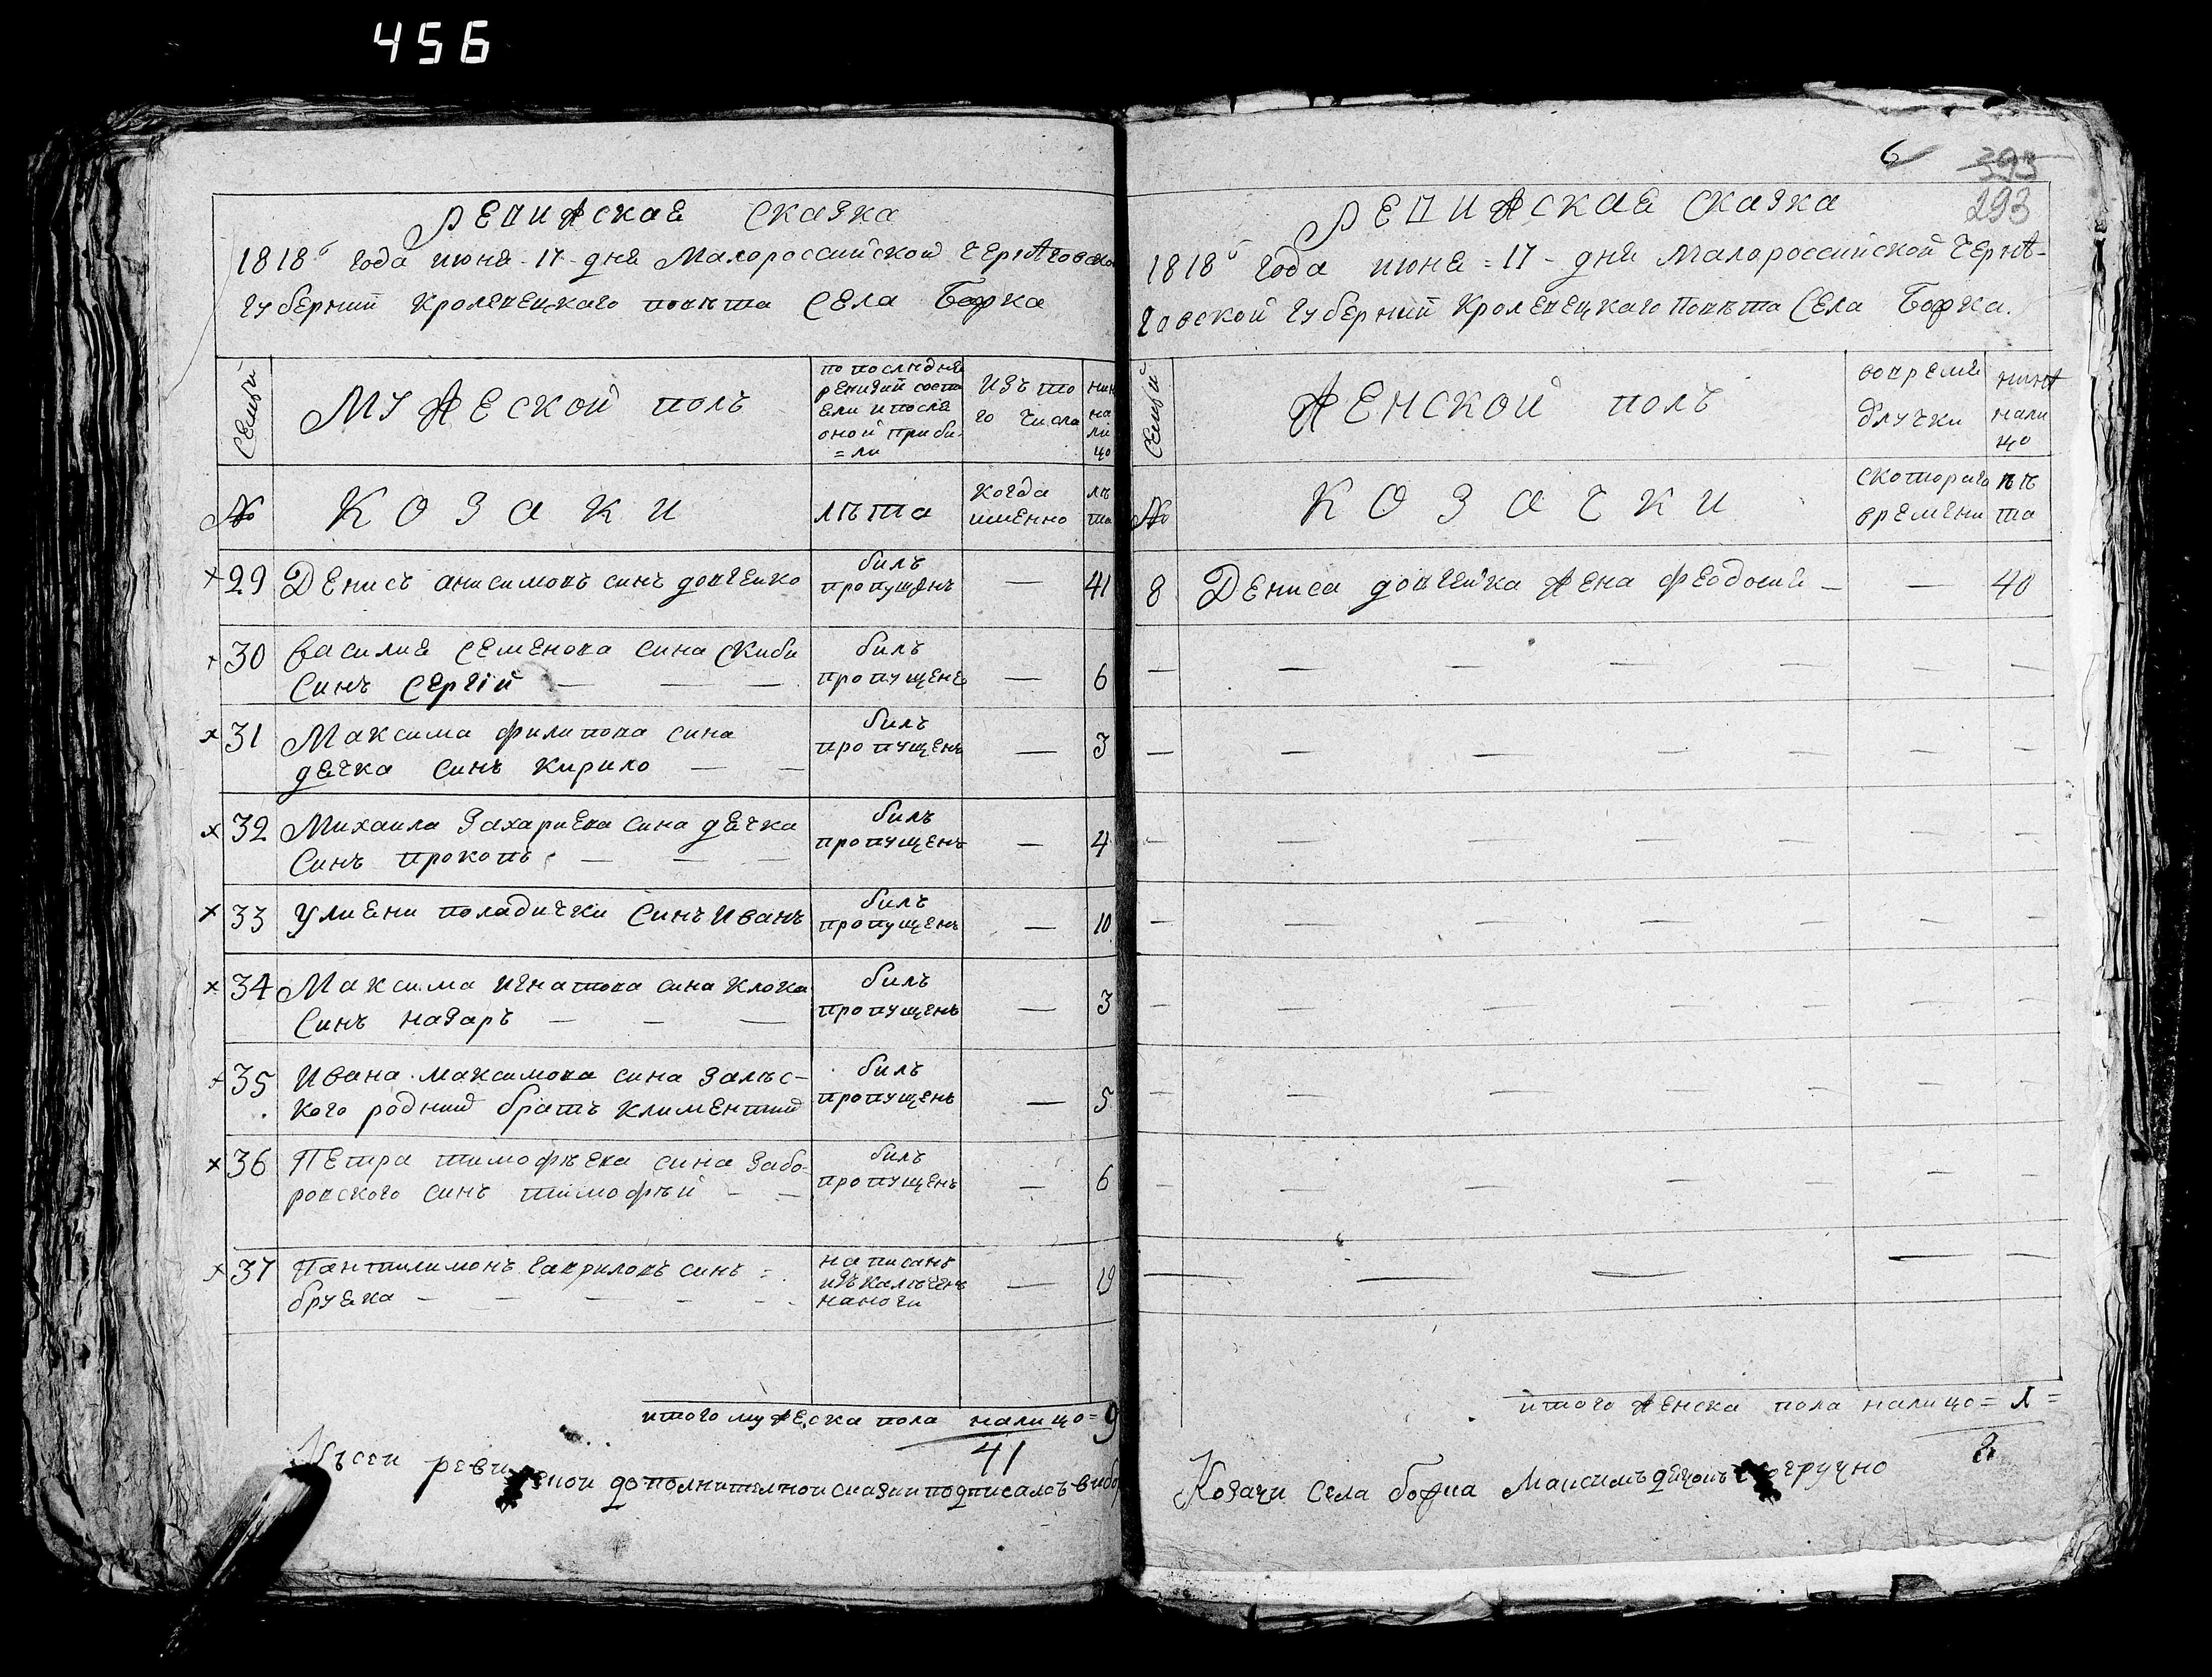 456
РЕВИЖСКАЯ СКАЗКА
1818го года июня - 17 - дня Малороссийской Чернѣговской
Губерний Кролевецкаго повѣта Села Боржа
Семьи
МУЖЕСКОЙ ПОЛЪ
по последней
ревизий состо
яли и после
оной приби-
= ли
Изъ то
го числа
нинѣ
на
ли
цо
№
КОЗАКИ
лѣта
когда
именно
лѣ
та
×29 Денисъ анисимовъ синъ довгейко
билъ
пропущенъ
—
41
+30 Василия Семенова сина Скиби
Синъ Сергій — — —
билъ
пропущенъ
—
6
×31 Максима филипова сина
дячка синъ Кирило — —
билъ
пропущенъ
—
3
×32 Михаила Захариева сина дячка
Синъ прокопъ — — —
билъ
пропущенъ
—
4
×33 Улияни поладички Синъ Иванъ
билъ
пропущенъ
—
10
×34 Максима игнатова сина Клока
Синъ назаръ — — —
билъ
пропущенъ
—
3
+35 Ивана Максимова сина Залѣс-
кого родний братъ Климентий
билъ
пропущенъ
—
5
×36 Петра тимофѣева сина Забо-
ровского синъ тимофѣй — —
билъ
пропущенъ
—
6
×37 Пантилимонъ гавриловъ синъ =
бруяка — — — — —
написанъ
изъкалѣченъ
наноги
—
19
итого мужеска пола налицо = 9
41
Късей дополнителной сказки подписалсъ вибор
6 393
293
РЕВИЖСКАЯ СКАЗКА
1818го Года июня = 17 - дня Малороссийской Чернѣ-
говской Губерний Кролевецкаго Повѣта Села Боржа.
Семьи
ЖЕНСКОЙ ПОЛЪ
вовремя
длучки
нинѣ
нали
цо
№
КОЗАЧКИ
скотораго
времени
лѣ
та
8 Дениса довгейка жена феодосия —
—
40
итого женска пола налицо = 1 =
8
Козачи Села боржа Максимъ дячокъ